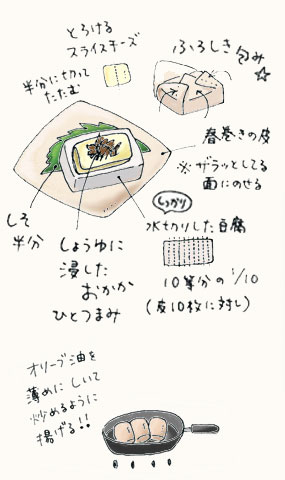 とろける
スライスチーズ
半分に切って
たたむ
ふろしき包み
春巻きの皮
※ザラッとしてる
面にのせる
しそ
半分
しっかり
水切りした豆腐
しょうゆに
浸した
おかか
ひとつまみ
10等分の1/10
(皮10枚に対し)
オリーブ油を
薄めにしいて
炒めるように
揚げる!!